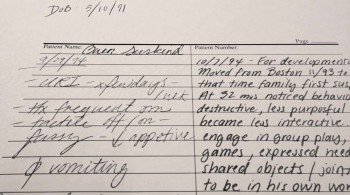 DOB: 5/10/91
Page
Patient Name: Owen Suskind
Patient Number:
9/29/94
URI - x few days -
/ wk
Hx frequent om
tactile off/on
fussy - ↓ appetite
∅ vomiting
10/7/94 - For development
Moved from Boston 11/93 to
that time family first sus
At 32 mos noticed behavio
destructive, less purposful
became less interactive.
engage in group play,
games, expressed need
shared objects / join
to be in his own wo